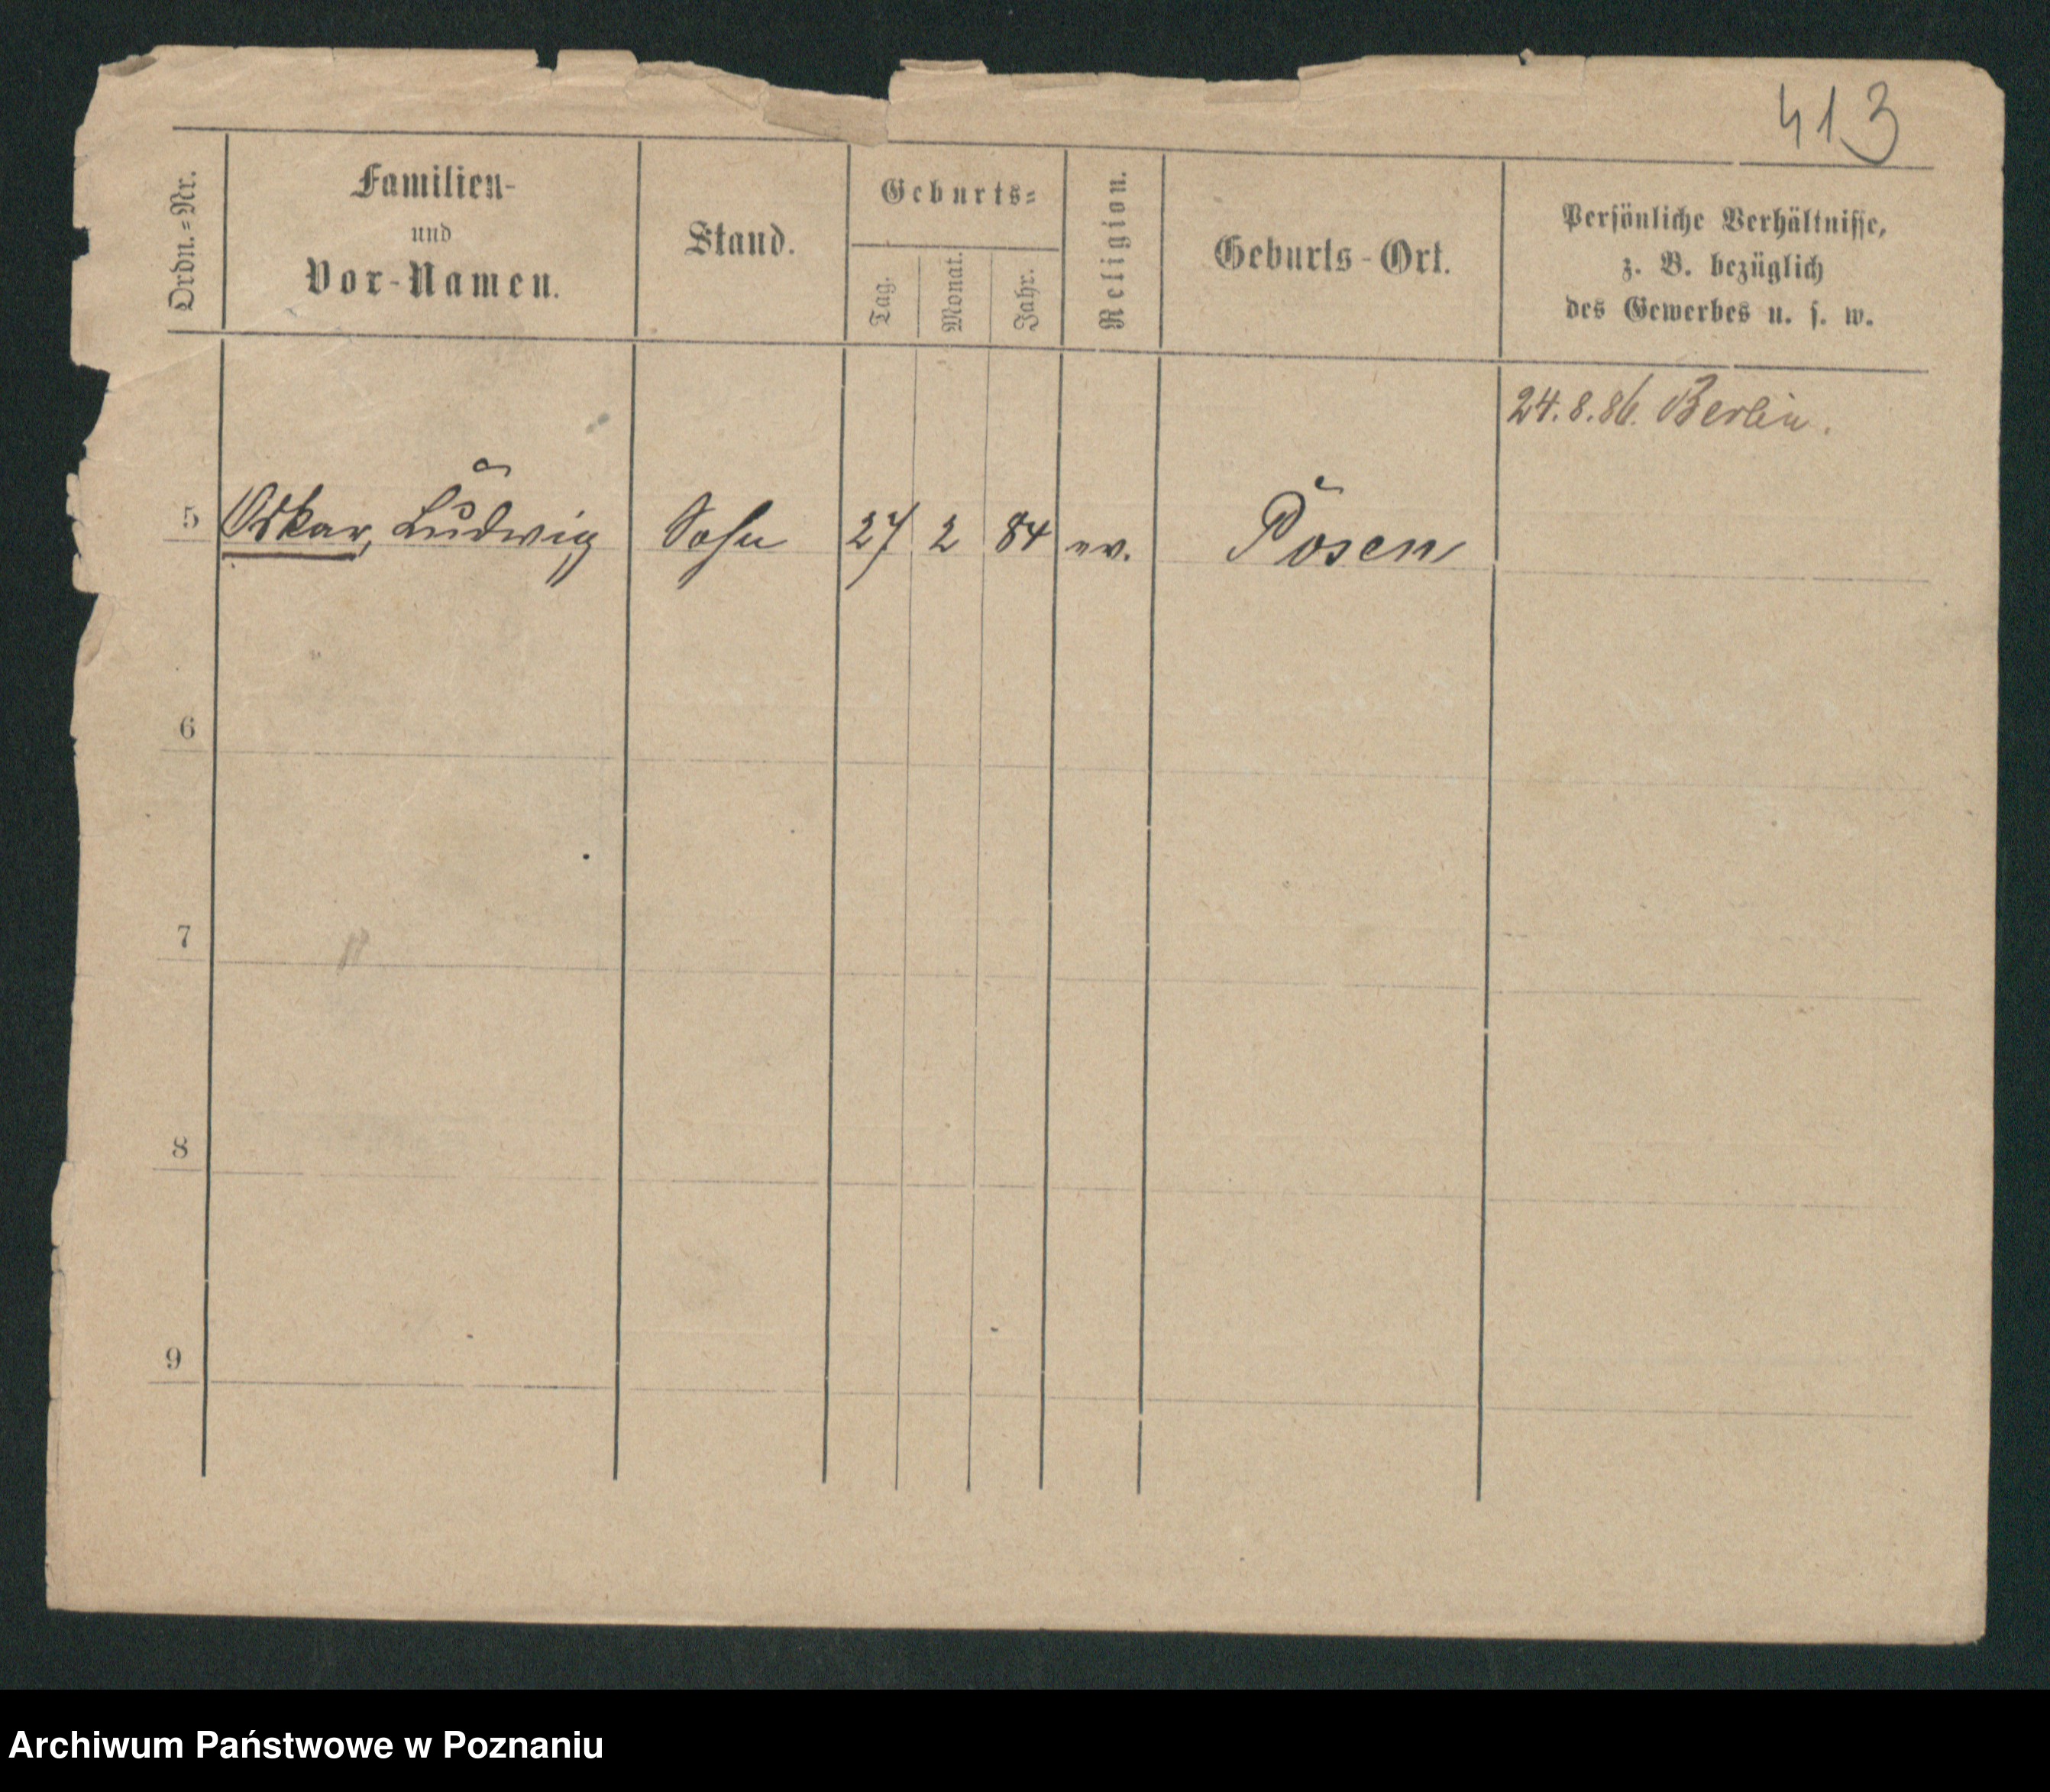 413
Ordn.=Nr.
Familien-
und
Vor-Namen.
Stand.
Geburts=
Tag.
Monat.
Jahr.
Religion.
Geburts-Ort.
Persönliche Verhältnisse,
z. B. bezüglich
des Gewerbes u. s. w.
24.8.86. Berlin.
5 Oskar, Ludwig Sohn 27 2 84 ev. Posen
6
7
8
9
Archiwum Państwowe w Poznaniu